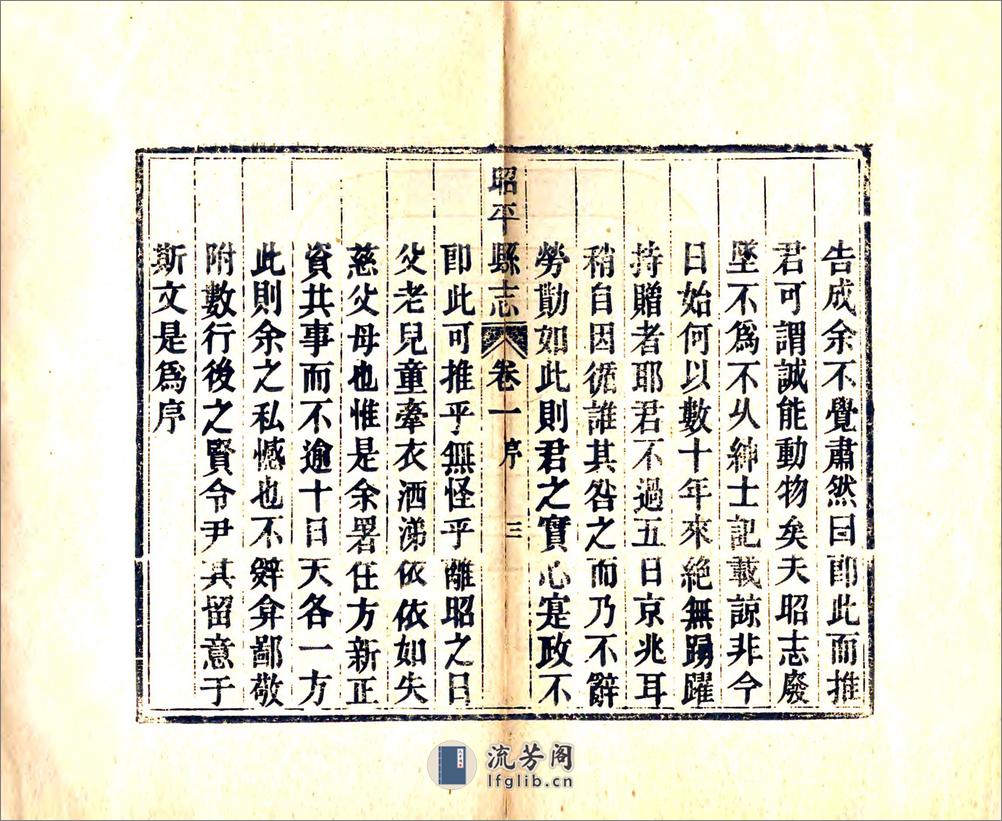 告成余不覺肅然曰卽此而推
君可謂誠能動物矣夫昭志廢
墜不爲不乆紳士記載諒非今
日始何以數十年來絕無踴躍
持贈者耶君不過五日京兆耳
稍自因循誰其咎之而乃不辭
勞勩如此則君之實心寔政不
昭平縣志 卷一 序 三
卽此可推乎無怪乎離昭之日
父老兒童牽衣洒涕依依如失
慈父母也惟是余署任方新正
資共事而不逾十日天各一方
此則余之私憾也不辤弇鄙敬
附數行後之賢令尹其留意于
斯文是爲序
流芳阁
lfglib.cn